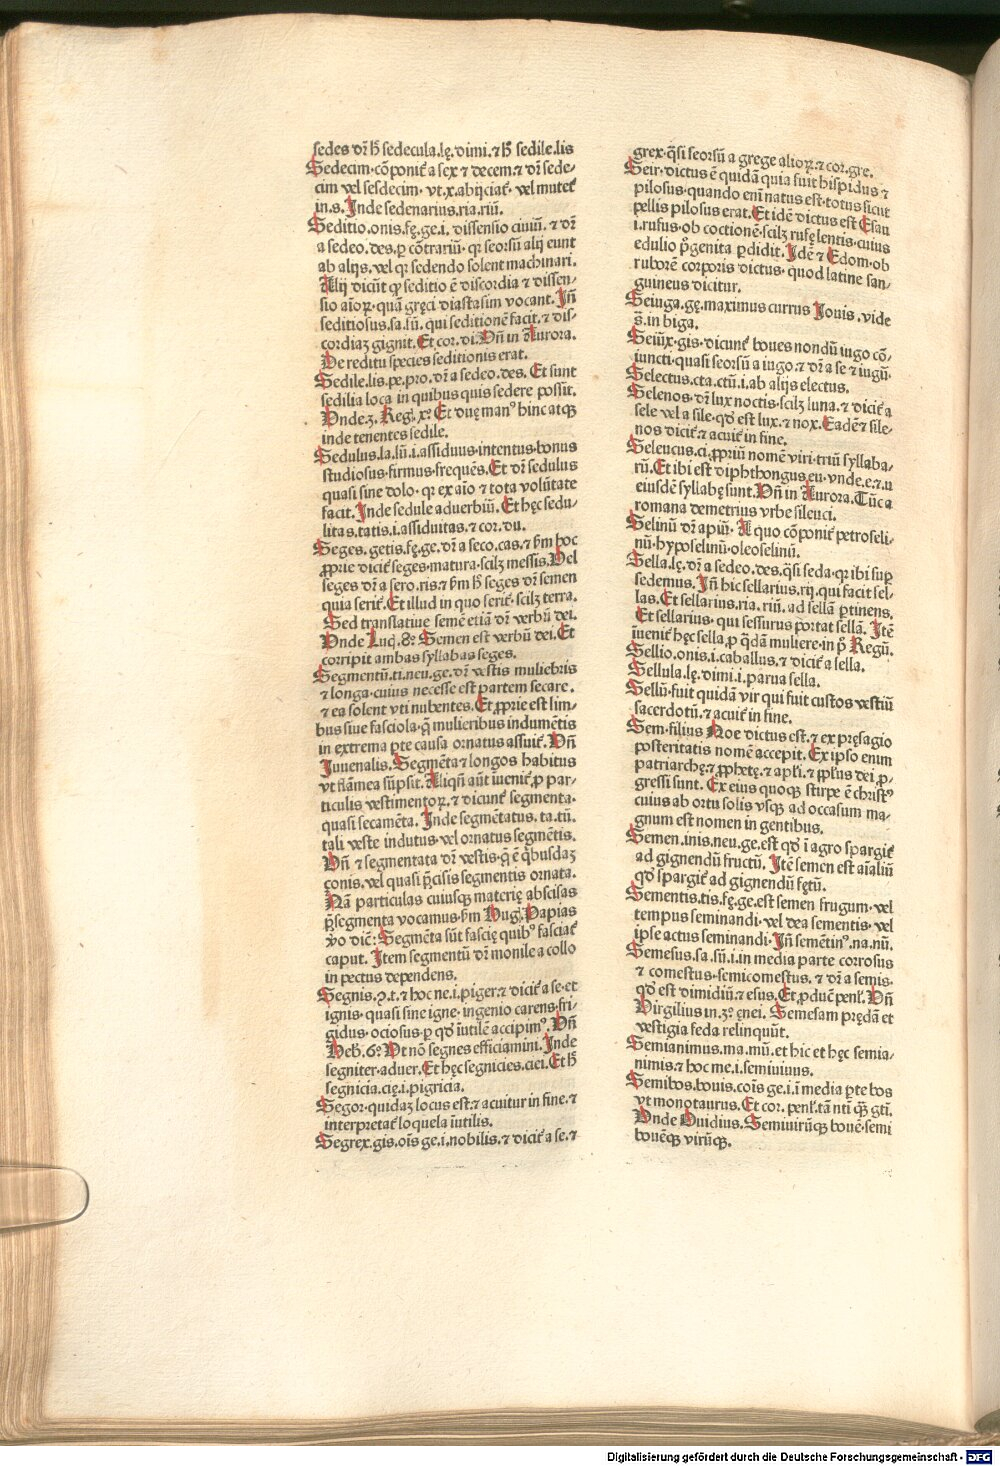 sedes dr̄ h̄ sedecula.lę.dimi.⁊ h̄ sedile.lis
Sedecim·cōponit̄ a sex ⁊ decem.⁊ dr̄ sede-
cim vel sesdecim· vt.x.abijciat̄· vel mutet̄
in.s. Inde sedenarius.ria.riū.
Seditio.onis.fę.ge.i. dissensio ciuiū. ⁊ dr̄
a sedeo.des.ꝑ cōtrariū· qꝛ seorsū alij eunt
ab alijs.vel qꝛ sedendo solent machinari.
Alij dicūt ꝙ seditio ē discordia ⁊ dissen-
sio aīoꝝ·quā gręci diastasim vocant. Iñ
seditiosus.sa.sū. qui seditionē facit.⁊ dis-
cordiaꝫ gignit.Et cor.di. Vñ in Aurora.
De reditu species seditionis erat.
Sedile.lis.pe.pro.dr̄ a sedeo.des. Et sunt
sedilia loca in quibus quis sedere possit.
Vnde.3. Reḡ.xº Et duę manꝰ hinc atqꝫ
inde tenentes sedile.
Sedulus.la.lū.i.assiduus·intentus·bonus
studiosus·firmus·frequēs. Et dr̄ sedulus
quasi sine dolo· qꝛ ex aīo ⁊ tota volūtate
facit. Inde sedule aduerbiū. Et hęc sedu-
litas.tatis.i.assiduitas.⁊ cor.du.
Seges. getis.fę.ge. dr̄ a seco.cas.⁊ ẜm hoc
ꝓprie dicit̄ seges·matura·scilꝫ messis. Vel
seges dr̄ a sero.ris.⁊ ẜm h̄ seges dr̄ semen
quia serit̄. Et illud in quo serit̄·scilꝫ terra.
Sed translatiue semē etiā dr̄ verbū dei.
Vnde Luc̄.8º Semen est verbū dei. Et
corripit ambas syllabas seges.
Segmentū.ti.neu.ge.dr̄ vestis muliebris
⁊ longa·cuius necesse est partem secare.
⁊ ea solent vti nubentes. Et ꝓprie est lim-
bus siue fasciola·q̄ mulieribus indumētis
in extrema ꝑte causa ornatus assuit̄. Vñ
Iuuenalis. Segmēta ⁊ longos habitus
vt flāmea sūpsit. Aliqñ aūt īuenit̄ ꝓ par-
ticulis vestimentoꝝ.⁊ dicunt̄ segmenta·
quasi secamēta. Inde segmētatus.ta.tū.
tali veste indutus·vel ornatus segmētis.
Vñ ⁊ segmentata dr̄ vestis·q̄ ē q̇busdaꝫ
conis.vel quasi p̄cisis segmentis ornata.
Nā particulas cuiusqꝫ materię abscisas
p̄segmenta vocamus·ẜm Huḡ. Papias
v̊o dic̄: Segmēta sūt fascię quibꝰ fasciat̄
caput. Item segmentū dr̄ monile a collo
in pectus dependens.
Segnis.⁊.t.⁊ hoc ne.i.piger.⁊ dicit̄ a se.et
ignis·quasi sine igne· ingenio carens·fri-
gidus·ociosus·ꝑ qd̄ īutilē accipimꝰ. Vñ
Heb̄.6º Vt nō segnes efficiamini. Inde
segniter·aduer. Et hęc segnicies.ciei. Et h̄
segnicia.cię.i.pigricia.
Segor·quidaꝫ locus est.⁊ acuitur in fine.⁊
interpretat̄ loquela īutilis.
Segrex.gis.oīs ge.i.nobilis.⁊ dicit̄ a se.⁊
grex·q̄si seorsū a grege alioꝝ.⁊ cor.gre.
Seir·dictus ē quidā quia fuit hispidus ⁊
pilosus·quando eni natus est·totus sicut
pellis pilosus erat. Et idē dictus est Esau
.i.rufus·ob coctionē·scilꝫ rufę lentis·cuius
edulio p̄genita ꝑdidit. Idē ⁊ Edom·ob
ruborē corporis dictus·quod latine san-
guineus dicitur.
Seiuga.gę.maximus currus Iouis.vide
s̄.in biga.
Seiūx·gis·dicunt̄ boues nondū iugo cō-
iuncti·quasi seorsū a iugo.⁊ dr̄ a se ⁊ iugū.
Selectus.cta.ctū.i.ab alijs electus.
Selenos·dr̄ lux noctis·scilꝫ luna.⁊ dicit̄ a
sele vel a sile·qd̄ est lux.⁊ nox. Eadē ⁊ sile-
nos dicit̄.⁊ acuit̄ in fine.
Seleucus.ci.ꝓpriū nomē viri·triū syllaba-
rū. Et ibi est diphthongus eu·vnde.e.⁊.u
eiusdē syllabę sunt. Vñ in Aurora. Tūc a
romana demetrius vrbe sileuci.
Selinū dr̄ apiū. A quo cōponit̄ petroseli-
nū·hyposelinū·oleoselinū.
Sella.lę. dr̄ a sedeo.des.q̄si seda·qꝛ ibi suꝑ
sedemus. Iñ hic sellarius.rij.qui facit sel-
las. Et sellarius.ria.riū. ad sellā ꝑtinens.
Et sellarius· qui sessurus portat sellā. Itē
īuenit̄ hęc sella ꝓ q̄dā muliere·in p̊ Regū.
Sellio.onis.i.caballus.⁊ dicit̄ a sella.
Sellula.lę.dimi.i.parua sella.
Sellū·fuit quidā vir qui fuit custos vestiū
sacerdotū.⁊ acuit̄ in fine.
Sem·filius Noe dictus est.⁊ ex pręsagio
posteritatis nomē accepit. Ex ipso enim
patriarchę.⁊ ꝓphetę.⁊ apl̄i.⁊ ppl̄us dei ꝓ-
gressi sunt. Ex eius quoqꝫ stirpe ē christꝰ
cuius ab ortu solis vsqꝫ ad occasum ma-
gnum est nomen in gentibus.
Semen.inis.neu.ge.est qd̄ ī agro spargit̄
ad gignendū fructū. Itē semen est aīaliū
qd̄ spargit̄ ad gignendū fętū.
Sementis.tis.fę.ge.est semen frugum·vel
tempus seminandi·vel dea sementis·vel
ipse actus seminandi· Iñ semētinꝰ.na.nū.
Semesus.sa.sū.i.in media parte corrosus
⁊ comestus·semicomestus.⁊ dr̄ a semis.
qd̄ est dimidiū.⁊ esus. Et ꝓduc̄ penl̄. Vñ
Virgilius in.3º ęnei. Semesam prędā et
vestigia feda relinquūt.
Semianimus.ma.mū.et hic et hęc semia-
nimis.⁊ hoc me.i.semiuiuus.
Semibos.bouis.coīs ge.i.ī media ꝑte bos
vt monotaurus. Et cor. penl̄.tā nti q̄ꝫ gti.
Vnde Ouidius. Semiuirūqꝫ bouē·semi
bouēqꝫ virūqꝫ.
Digitalisierung gefördert durch die Deutsche Forschungsgemeinschaft - DFG